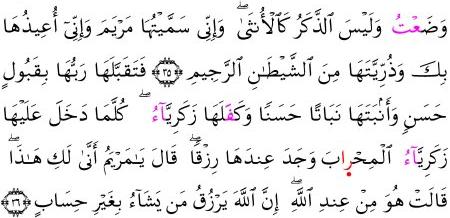 وَضَعْتُ وَلَيْسَ الذَّكَرُ كَالْأُنثَىٰ ۖ وَإِنِّي سَمَّيْتُهَا مَرْيَمَ وَإِنِّيٓ أُعِيذُهَا
بِكَ وَذُرِّيَّتَهَا مِنَ الشَّيْطَـٰنِ الرَّجِيمِ ﴿٣٥﴾ فَتَقَبَّلَهَا رَبُّهَا بِقَبُولٍ
حَسَنٍ وَأَنۢبَتَهَا نَبَاتًا حَسَنًا وَكَفَلَهَا زَكَرِيَّآءُ ۖ كُلَّمَا دَخَلَ عَلَيْهَا
زَكَرِيَّآءُ الْمِحْرَابَ وَجَدَ عِندَهَا رِزْقًا ۖ قَالَ يَـٰمَرْيَمُ أَنَّىٰ لَكِ هَـٰذَا ۖ
قَالَتْ هُوَ مِنْ عِندِ اللَّهِ ۖ إِنَّ اللَّهَ يَرْزُقُ مَن يَشَآءُ بِغَيْرِ حِسَابٍ ﴿٣٦﴾